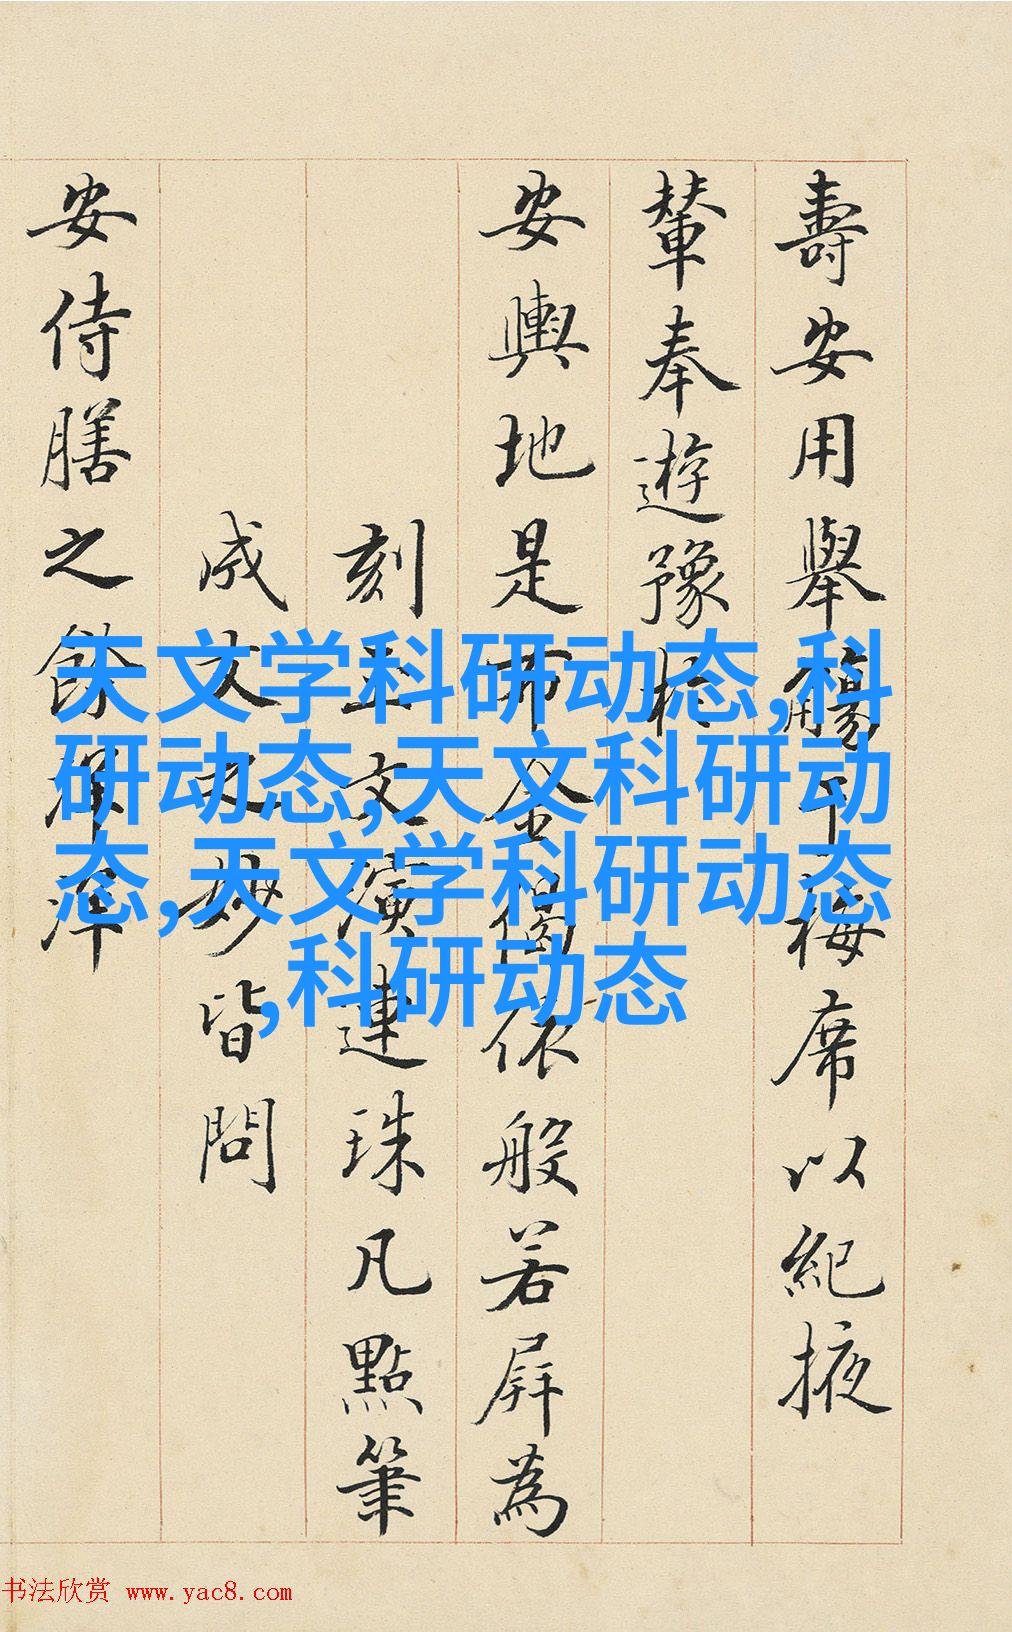 壽安用舉觴下梅席以紀掖
輦奉遊豫
安輿地是布金偈依般若屏為
刻玉文演連珠凡點筆
成文之妙皆問
安侍膳之餘擇
天文学科研动态,科
研动态,天文科研动
态,天文学科研动态
,科研动态
书法欣赏 www.yac8.com